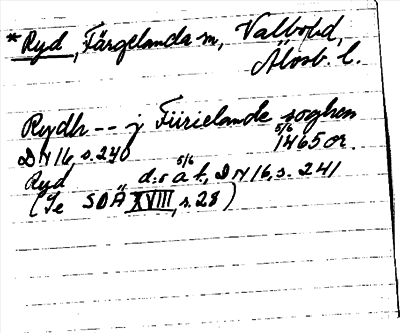 * Ryd, Färgelanda sn, Valbo hd,
Älvsb. l.
Rydh -- j Fiirielande soghen
5/6 1465 or.
DN 16, s. 240
Ryd d:o 5/6 å t, DN 16, s. 241
(Se SOÄ XVIII, s. 28)